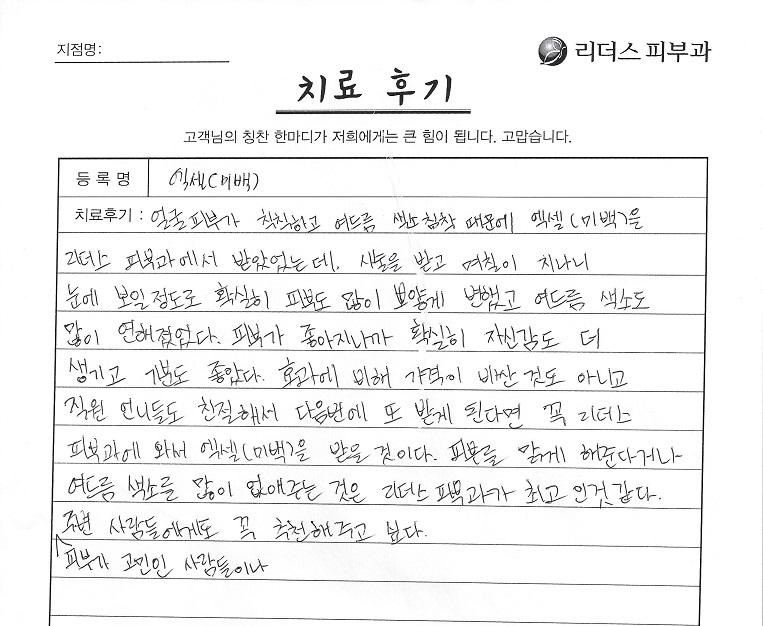 지점명:
리더스 피부과
치료 후기
고객님의 칭찬 한마디가 저희에게는 큰 힘이 됩니다. 고맙습니다.
등 록 명 엑셀(미백)
치료후기 : 얼굴피부가 칙칙하고 여드름 색소침착 때문에 엑셀(미백)을
리더스 피부과에서 받았었는데, 시술을 받고 며칠이 지나니
눈에 보일정도로 확실히 피부도 많이 뽀얗게 변했고 여드름 색소도
많이 연해졌었다. 피부가 좋아지니까 확실히 자신감도 더
생기고 기분도 좋았다. 효과에 비해 가격이 비싼 것도 아니고
직원 언니들도 친절해서 다음번에 또 받게 된다면 꼭 리더스
피부과에 와서 엑셀(미백)을 받을 것이다. 피부를 맑게 해준다거나
여드름 색소를 많이 없애주는 것은 리더스 피부과가 최고 인것 같다.
주변 사람들에게도 꼭 추천해주고 싶다.
피부가 고민인 사람들이나